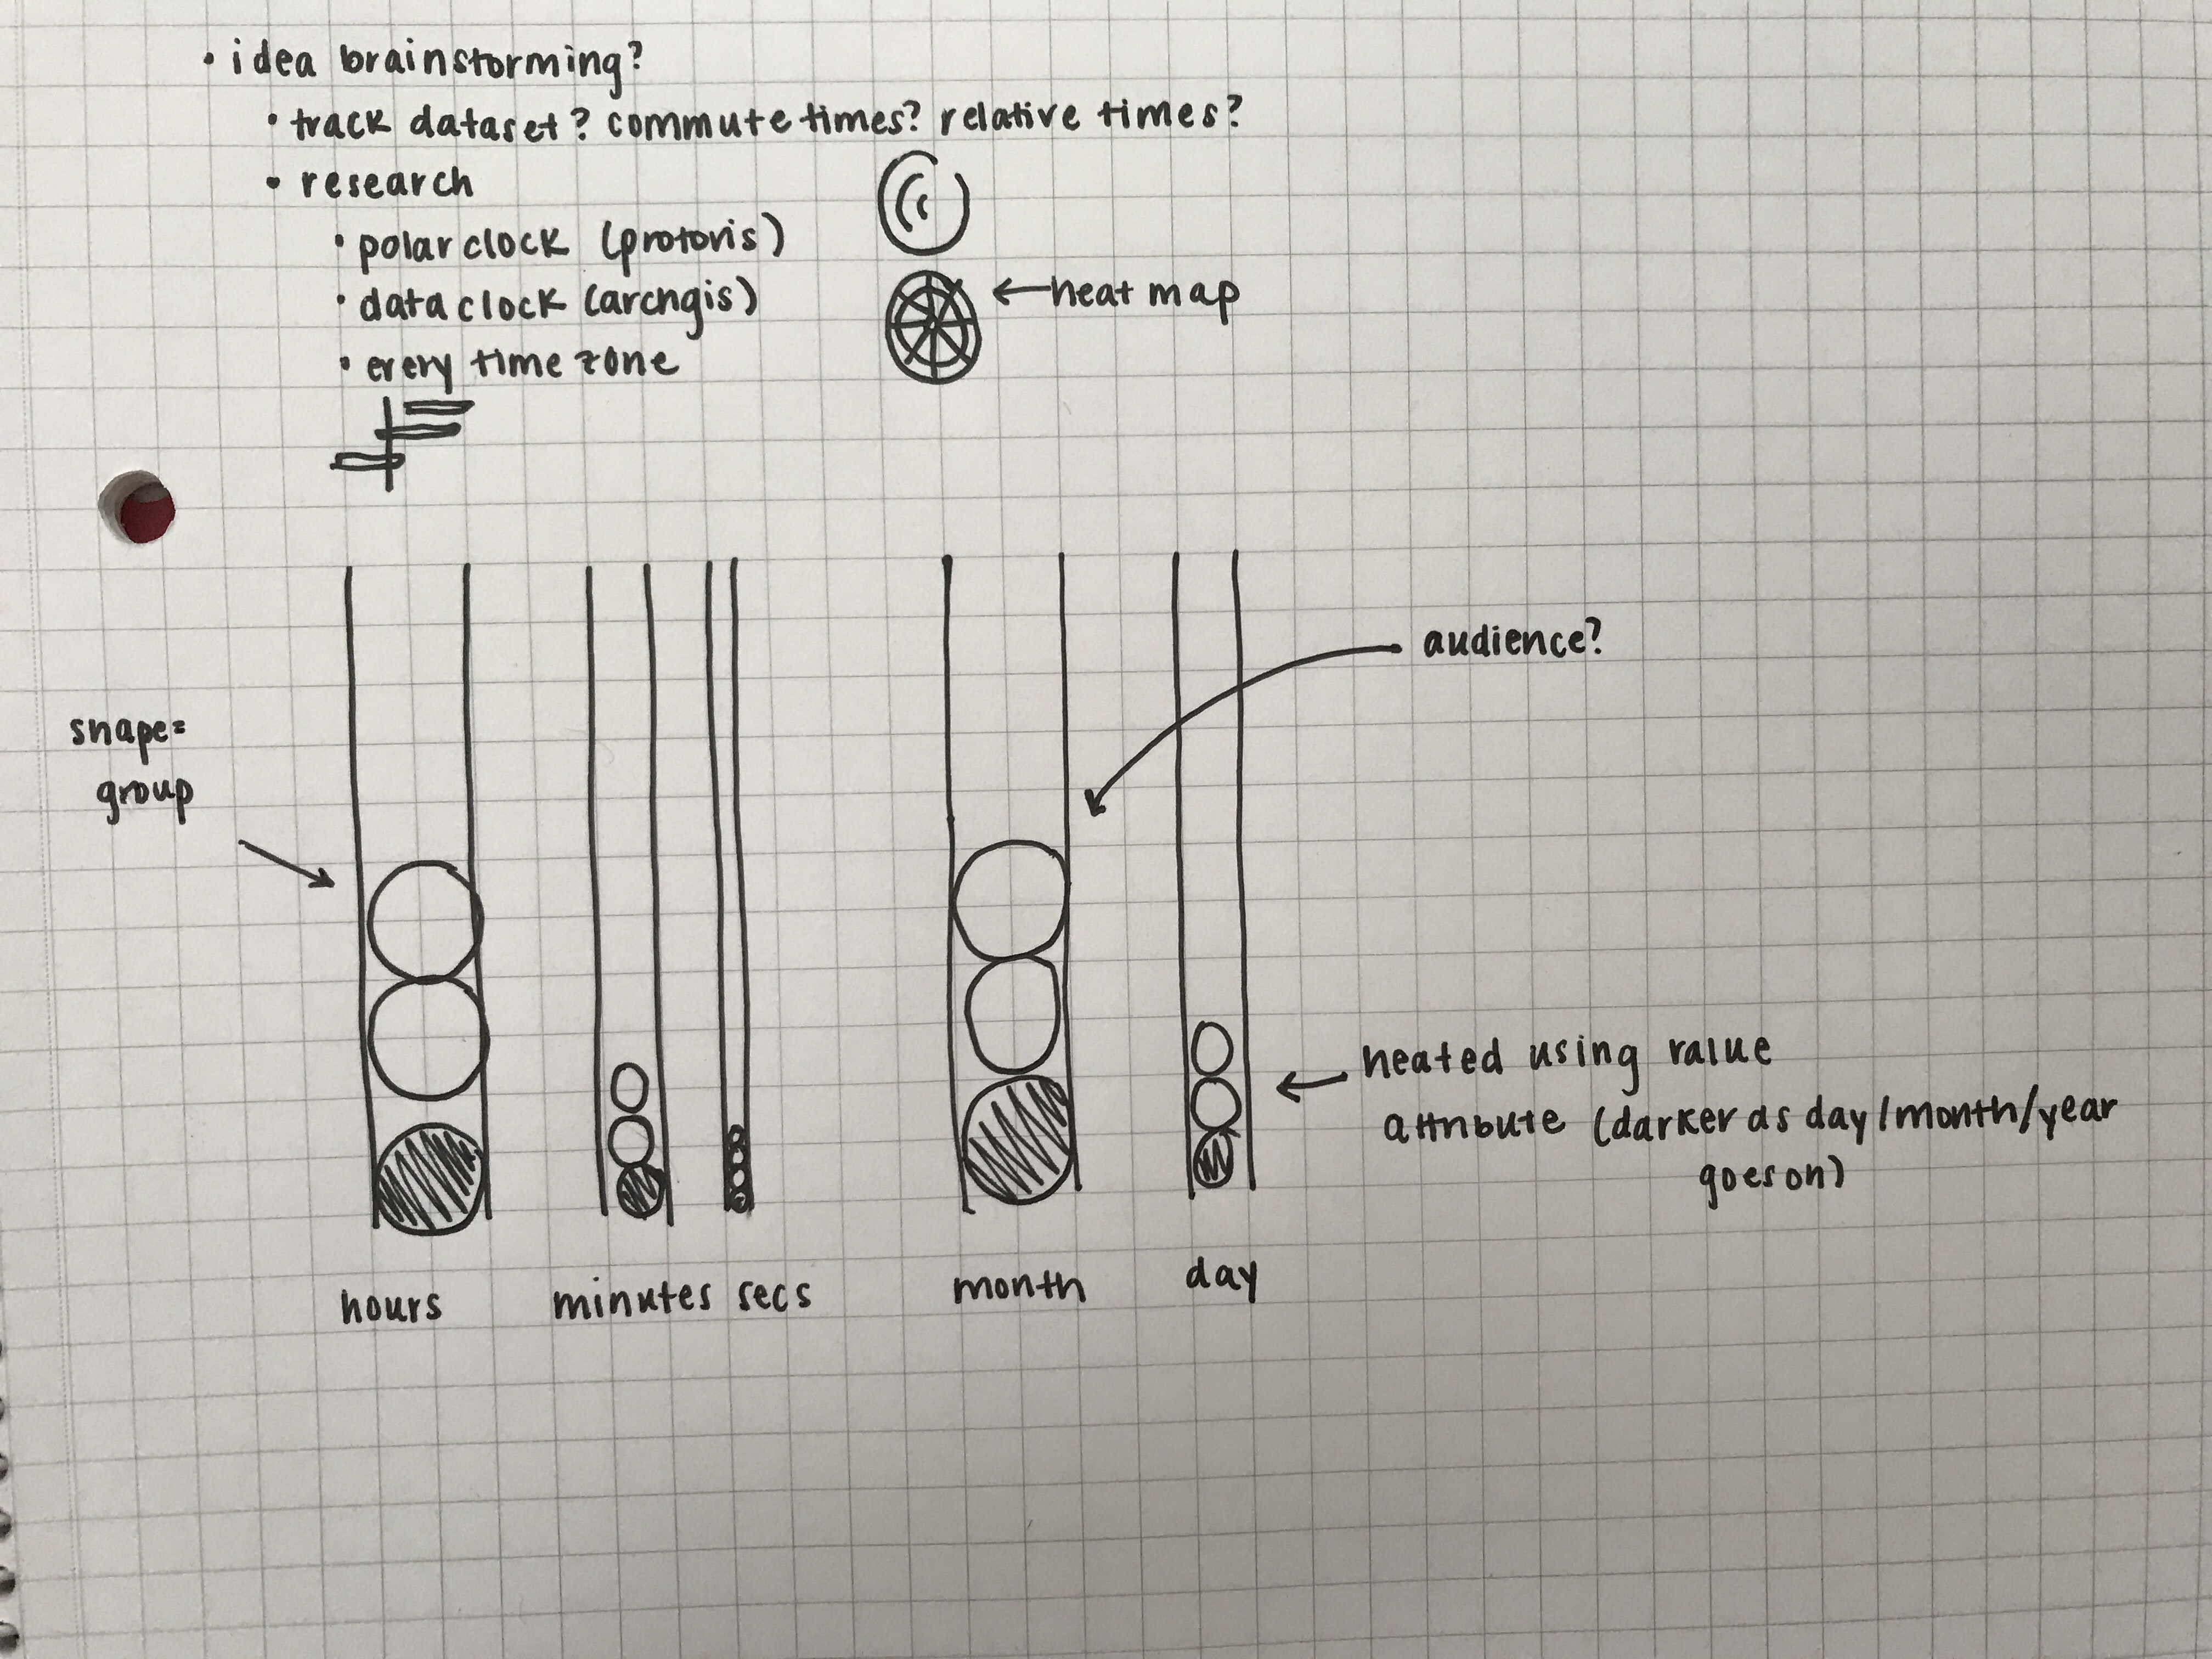 • idea brainstorming?
• track dataset? commute times? relative times?
• research
• polar clock (protovis)
• data clock (arcngis)
← heat map
• every time zone
audience?
shape=
group
heated using value
attribute (darker as day/month/year
goes on)
hours
minutes
secs
month
day